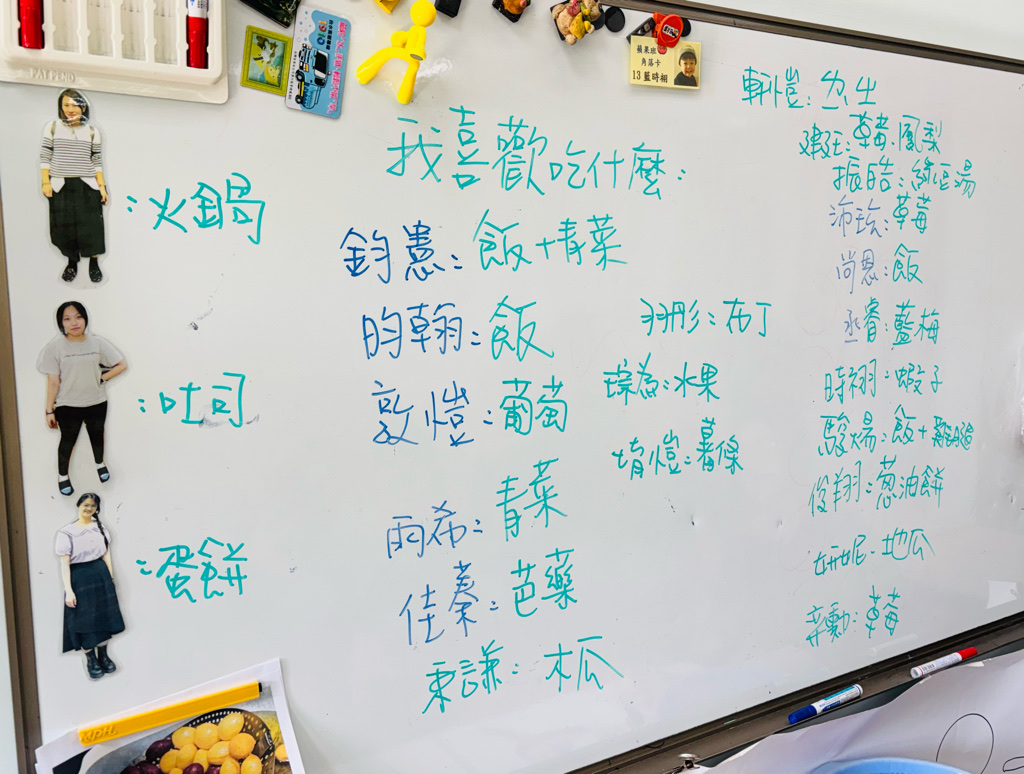 我喜歡吃什麼:
:火鍋
:吐司
:蛋餅
鈞憲:飯+青菜
昀翰:飯
敦愷:葡萄
雨希:青菜
佳蓁:芭藥
秉謙:木瓜
羽彤:布丁
琮為:水果
堉愷:薯條
軒愷:
建廷:草莓.鳳梨
振皓:綠豆湯
沛玹:草莓
尚恩:飯
丞睿:藍梅
時翊:蝦子
駿煬:飯+雞腿
俊翔:蔥油餅
妍妮:地瓜
莘勳:草莓
蘋果班
角落卡
13 藍時栩